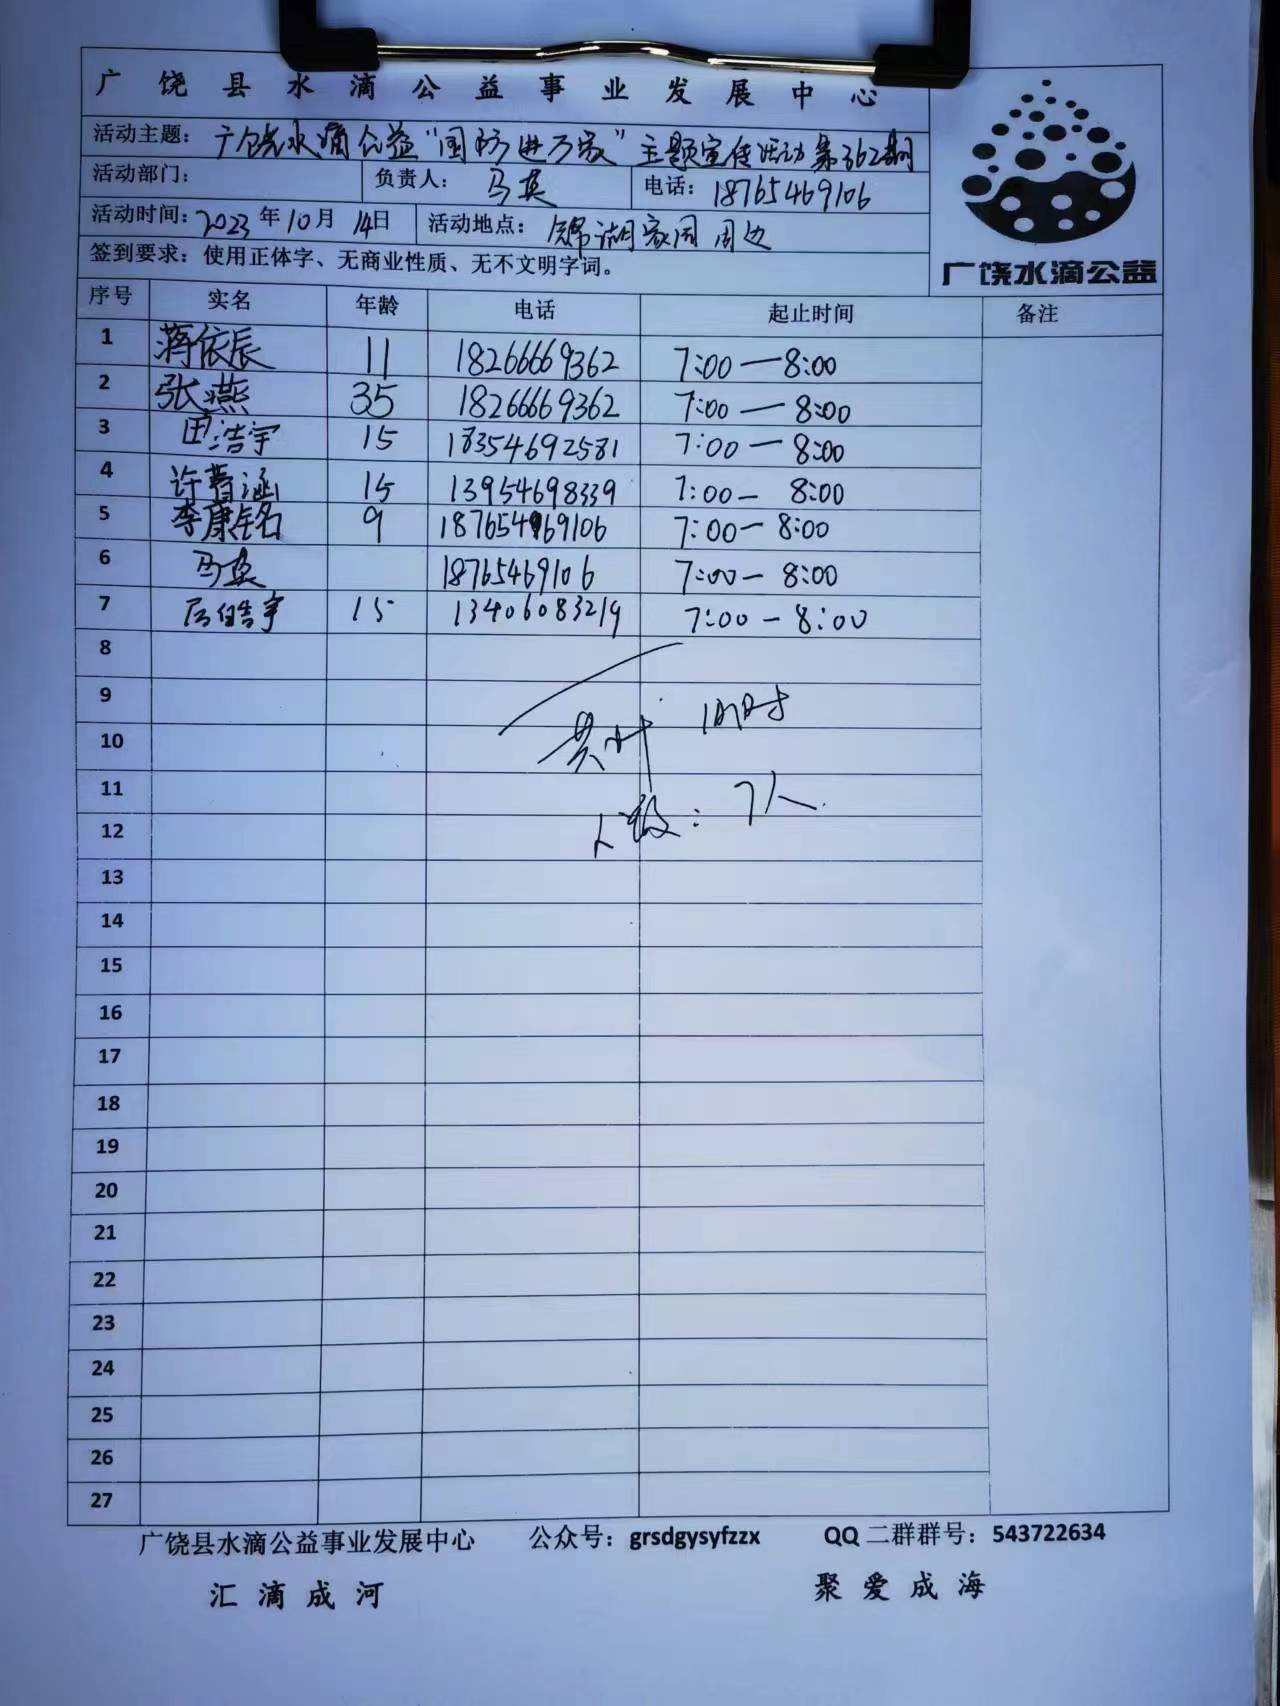 广饶县水滴公益事业发展中心
活动主题：广饶水滴公益“国防进万家”主题宣传活动第362期
活动部门： 负责人：马英 电话：18765469106
活动时间：2023年10月14日 活动地点：锦湖家园周边
签到要求：使用正体字、无商业性质、无不文明字词。
广饶水滴公益
序号 实名 年龄 电话 起止时间 备注
1 蒋依辰 11 18266669362 7:00—8:00
2 张燕 35 18266669362 7:00—8:00
3 田浩宇 15 18354692581 7:00—8:00
4 许晋涵 15 13954698339 7:00—8:00
5 李康铭 9 18765469106 7:00—8:00
6 马英 18765469106 7:00—8:00
7 皓宇 15 13406083219 7:00—8:00
8
9
10 共计 1小时
11
12 人数：7人
13
14
15
16
17
18
19
20
21
22
23
24
25
26
27
广饶县水滴公益事业发展中心 公众号：grsdgysyfzzx QQ二群群号：543722634
汇滴成河 聚爱成海